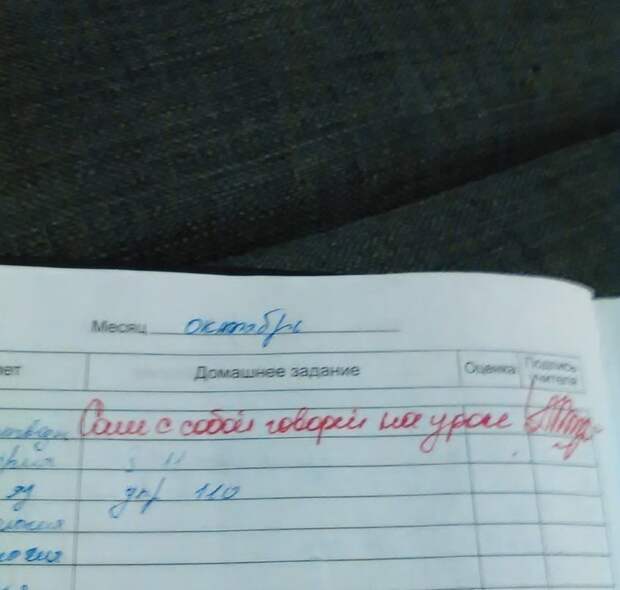 Месяц октябрь
Домашнее задание Оценка Подпись учителя
Сам с собой говорил на уроке
§ 11
яз упр 110